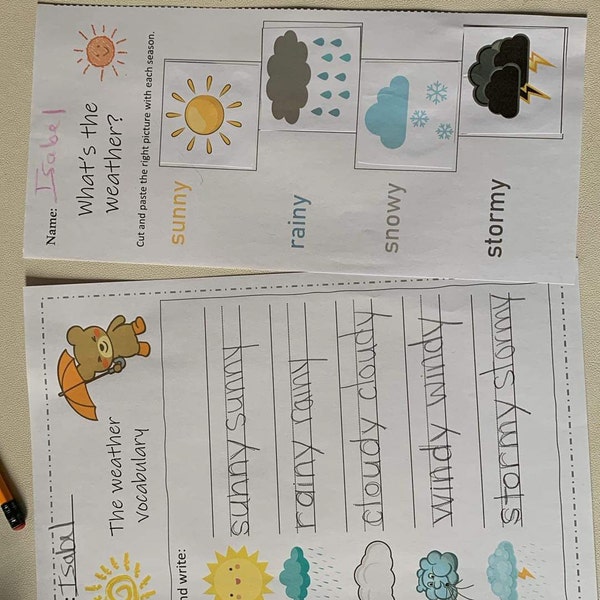 Name: Isabel
What's the
weather?
Cut and paste the right picture with each season.
sunny
rainy
snowy
stormy
: Isabel
The weather
vocabulary
nd write:
sunny sunny
rainy rainy
cloudy cloudy
windy windy
stormy stormy